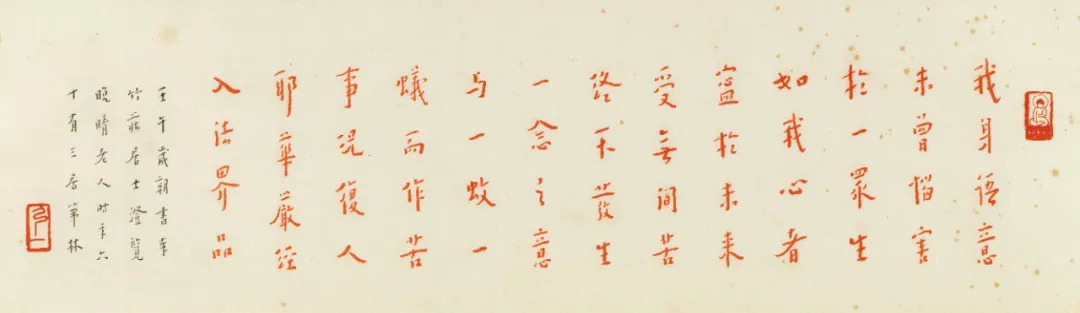 我身語意
未曾惱害
於一眾生
如我心者
寧於未来
受無间苦
終不發生
一念之意
与一蚊一
蟻而作苦
事況復人
耶華嚴経
入法界品
壬午歲朝書奉
竹莊居士澄覽
晚晴老人时年六
十有三居茀林
弘一